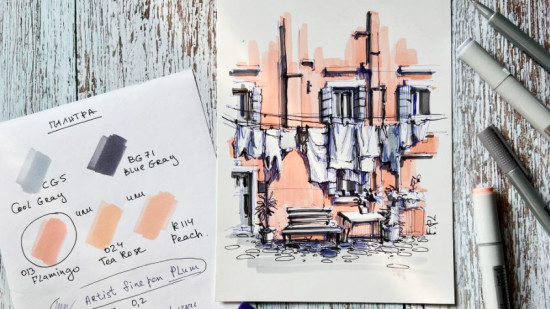 ПАЛИТРА
CG5
Cool Gray
BG71
Blue Gray
или
или
013
Flamingo
024
Tea Rose
R114
Peach.
Artist fine pen PLUM
0,2